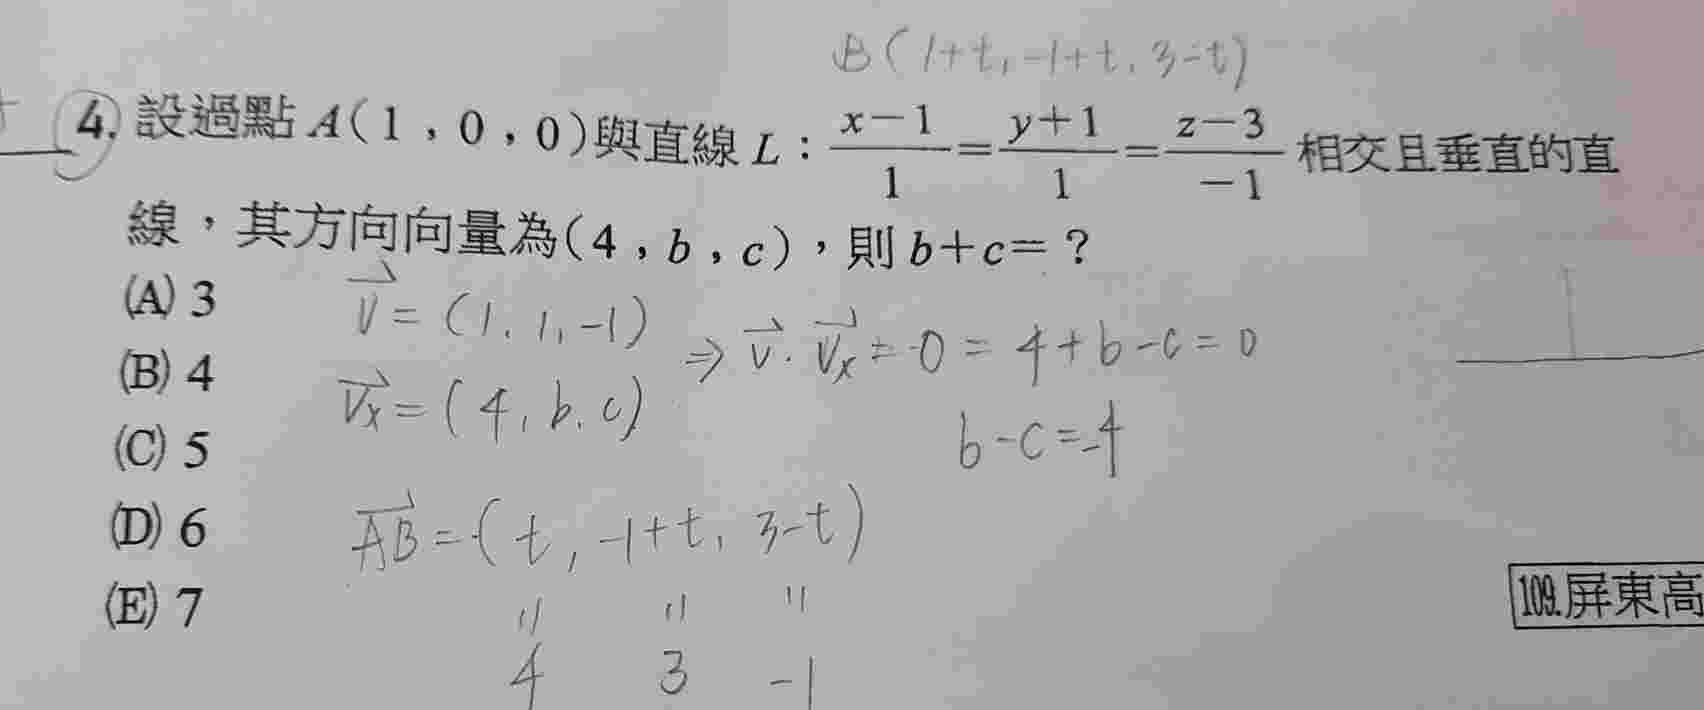 B(1+t, -1+t, 3-t)
4. 設過點 A(1，0，0)與直線 L：\frac{x-1}{1}=\frac{y+1}{1}=\frac{z-3}{-1} 相交且垂直的直
線，其方向向量為(4，b，c)，則 b+c=？
(A) 3
(B) 4
(C) 5
(D) 6
(E) 7
\vec{V} = (1, 1, -1)
\vec{V_x} = (4, b, c)
⇒ \vec{V}·\vec{V_x} = 0 = 4+b-c = 0
b-c=-4
\vec{AB} = (t, -1+t, 3-t)
" " "
4 3 -1
109.屏東高